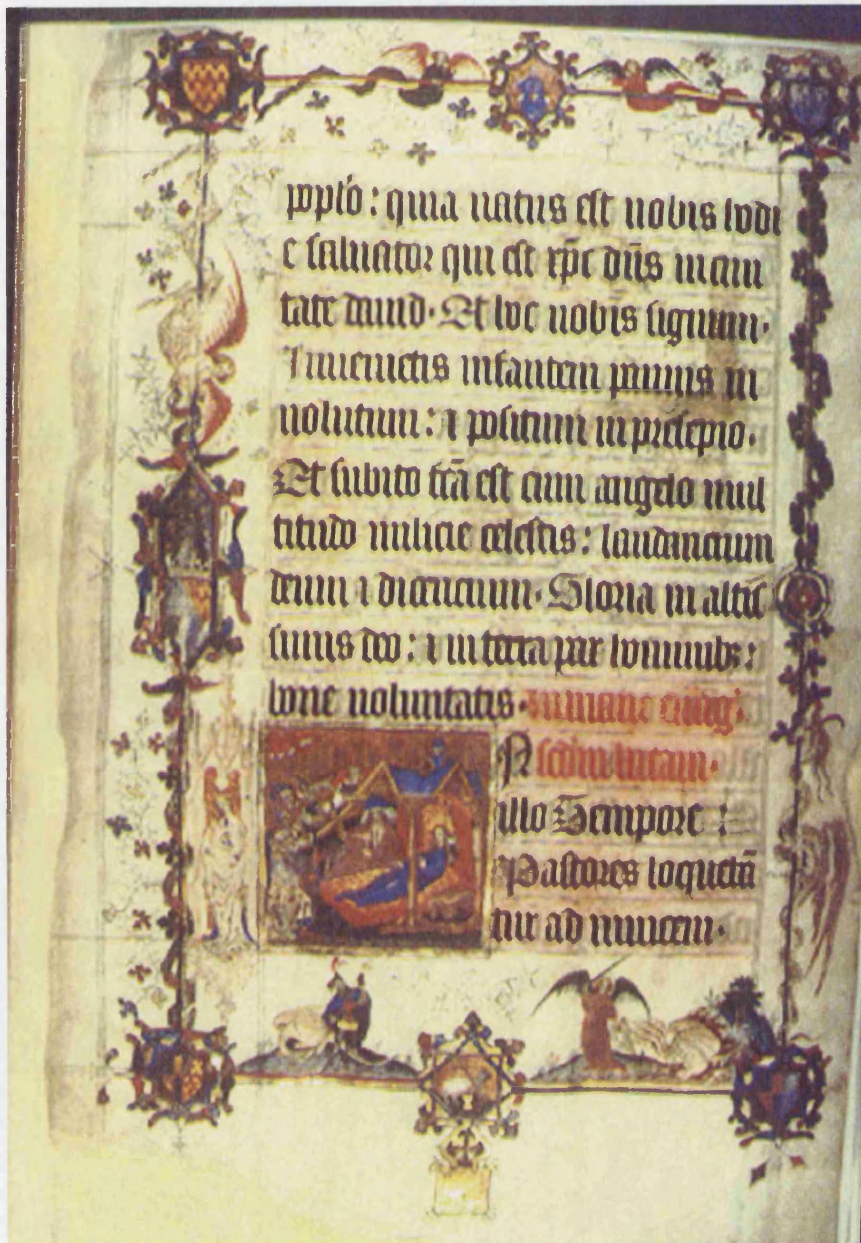 pplo : quia natus est nobis hodi
e saluator qui est xpc dns in ciui
tate dauid. Et hoc nobis signum.
Inuenietis infantem pannis in
uolutum : ⁊ positum in presepio.
Et subito fca est cum angelo mul
titudo milicie celestis : laudancium
deum ⁊ dicencium. Gloria in altis
simis deo : ⁊ in terra pax hominibus :
bone uoluntatis.
N scdm lucam.
illo Tempore :
Pastores loqueba
tur ad inuicem.